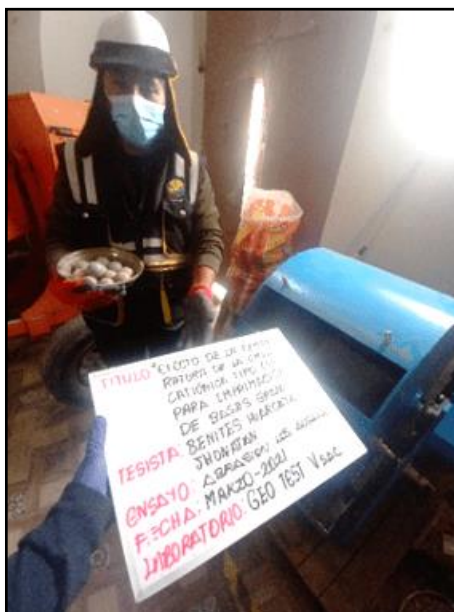 TITULO: "EFECTO DE LA TEMPE
RATURA DE LA
CATIÓNICA TIPO
PARA IMPRIMACIÓN
DE BASES
TESISTA: BENITES HUARCAYA
JHONATAN
ENSAYO: ABRASION LOS
FECHA: MARZO-2021
LABORATORIO: GEO TEST V SAC